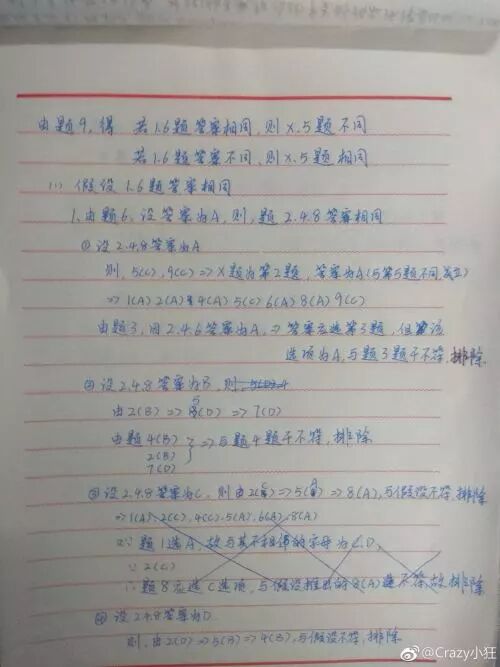 由题9,得 若1.6题答案相同,则X.5题不同
若1.6题答案不同,则X.5题相同
(1) 假设1.6题答案相同
1.由题6,设答案为A,则,题2.4.8答案相同
① 设2.4.8答案为A
则,5(C),9(C)=>X题为第2题,答案为A(与第5题不同,成立)
=>1(A)2(A)4(A)5(C)6(A)8(A)9(C)
由题3,因2.4.6答案为A,=>答案应选第3题,但该
选项为A,与题3题干不符,排除
② 设2.4.8答案为B,则
由2(B)=>5(D)=>7(D)
由题4(B)
2(B)
7(D)
=>与题4题干不符,排除
③设2.4.8答案为C,则由2(C)=>5(A)=>8(A),与假设不符,排除
=>1(A),2(C),4(C).5(A),6(A).8(A)
∵题1选A,故与其不相邻的字母为C.D,
∵2(C)
∴题8应选C选项,与假设推出的8(A)不符,故,排除
④设2.4.8答案为D
则,由2(D)=>5(B)=>4(B),与假设不符,排除
@Crazy小狂